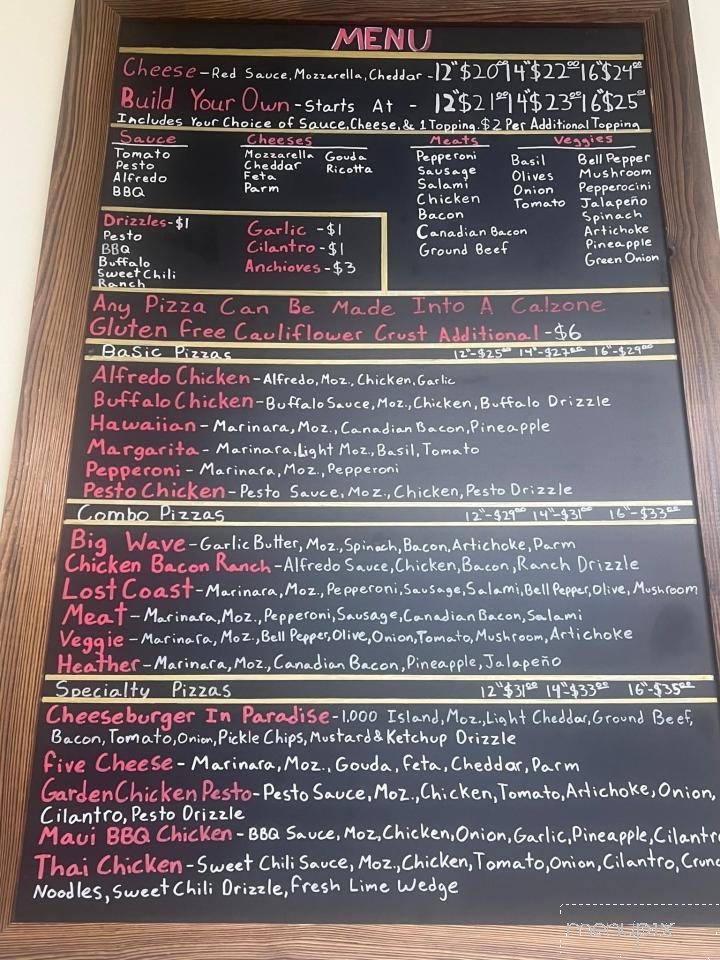 MENU
Cheese - Red Sauce, Mozzarella, Cheddar - 12" $20⁰⁰ 14" $22⁰⁰ 16" $24⁰⁰
Build Your Own - Starts At - 12" $21⁰⁰ 14" $23⁰⁰ 16" $25⁰⁰
Includes Your Choice of Sauce, Cheese, & 1 Topping. $2 Per Additional Topping
Sauce
Tomato
Pesto
Alfredo
BBQ
Cheeses
Mozzarella Gouda
Cheddar Ricotta
Feta
Parm
Meats
Pepperoni
Sausage
Salami
Chicken
Bacon
Canadian Bacon
Ground Beef
Veggies
Basil Bell Pepper
Olives Mushroom
Onion Pepperocini
Tomato Jalapeño
Spinach
Artichoke
Pineapple
Green Onion
Drizzles - $1
Pesto
BBQ
Buffalo
Sweet Chili
Ranch
Garlic - $1
Cilantro - $1
Anchioves - $3
Any Pizza Can Be Made Into A Calzone
Gluten Free Cauliflower Crust Additional - $6
Basic Pizzas 12"-$25⁰⁰ 14"-$27⁰⁰ 16"-$29⁰⁰
Alfredo Chicken - Alfredo, Moz., Chicken, Garlic
Buffalo Chicken - Buffalo Sauce, Moz., Chicken, Buffalo Drizzle
Hawaiian - Marinara, Moz., Canadian Bacon, Pineapple
Margarita - Marinara, Light Moz., Basil, Tomato
Pepperoni - Marinara, Moz., Pepperoni
Pesto Chicken - Pesto Sauce, Moz., Chicken, Pesto Drizzle
Combo Pizzas 12"-$29⁰⁰ 14"-$31⁰⁰ 16"-$33⁰⁰
Big Wave - Garlic Butter, Moz., Spinach, Bacon, Artichoke, Parm
Chicken Bacon Ranch - Alfredo Sauce, Chicken, Bacon, Ranch Drizzle
Lost Coast - Marinara, Moz., Pepperoni, Sausage, Salami, Bell Pepper, Olive, Mushroom
Meat - Marinara, Moz., Pepperoni, Sausage, Canadian Bacon, Salami
Veggie - Marinara, Moz., Bell Pepper, Olive, Onion, Tomato, Mushroom, Artichoke
Heather - Marinara, Moz., Canadian Bacon, Pineapple, Jalapeño
Specialty Pizzas 12" $31⁰⁰ 14" $33⁰⁰ 16"-$35⁰⁰
Cheeseburger In Paradise - 1,000 Island, Moz., Light Cheddar, Ground Beef,
Bacon, Tomato, Onion, Pickle Chips, Mustard & Ketchup Drizzle
Five Cheese - Marinara, Moz., Gouda, Feta, Cheddar, Parm
Garden Chicken Pesto - Pesto Sauce, Moz., Chicken, Tomato, Artichoke, Onion,
Cilantro, Pesto Drizzle
Maui BBQ Chicken - BBQ Sauce, Moz, Chicken, Onion, Garlic, Pineapple, Cilantro
Thai Chicken - Sweet Chili Sauce, Moz., Chicken, Tomato, Onion, Cilantro, Crunc
Noodles, Sweet Chili Drizzle, Fresh Lime Wedge
menupix